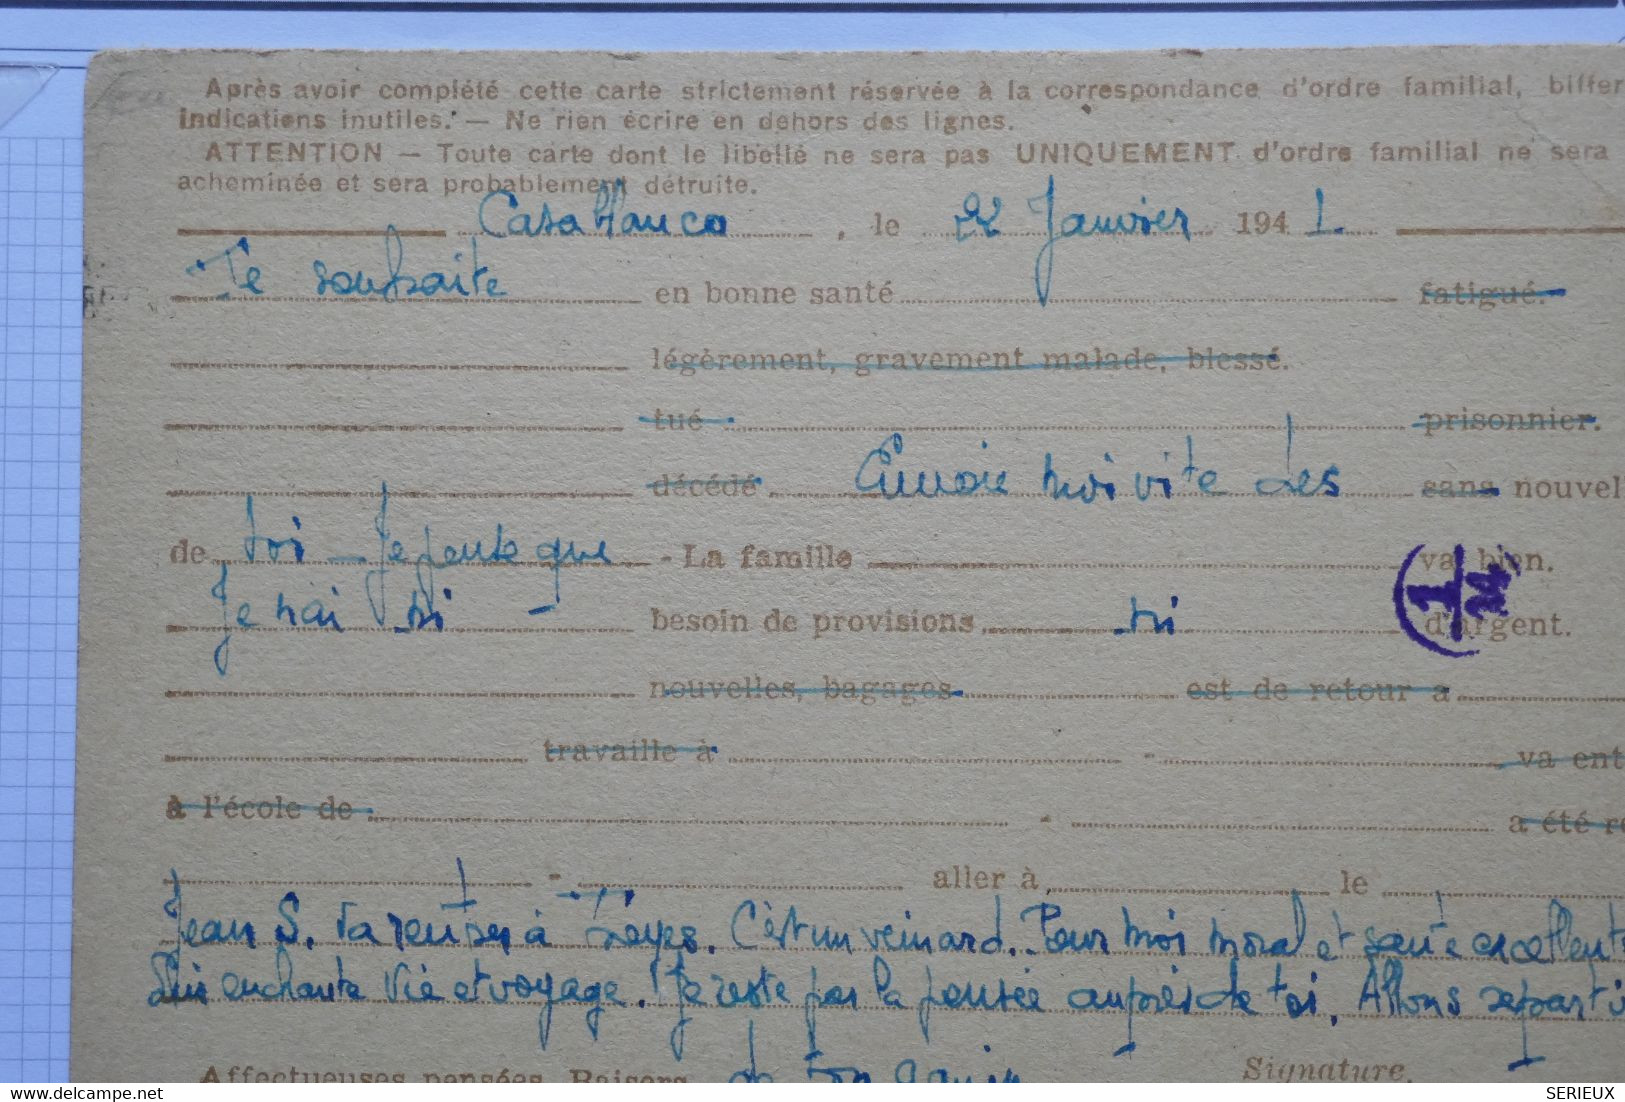 Après avoir complété cette carte strictement réservée à la correspondance d'ordre familial, biffer
indications inutiles. — Ne rien écrire en dehors des lignes.
ATTENTION — Toute carte dont le libellé ne sera pas UNIQUEMENT d'ordre familial ne sera
acheminée et sera probablement détruite.
Casablanca, le 22 Janvier 1941
Te souhaite en bonne santé fatigué.
légèrement, gravement malade, blessé.
tué prisonnier.
décédé Envoie moi vite des sans nouvel
de toi - Je pense que - La famille va bien.
Je n'ai ni besoin de provisions ni d'argent.
(1/24)
nouvelles, bagages est de retour à
travaille à - va ent
à l'école de - a été re
- aller à le
Jean S. va rentrer à Troyes. C'est un veinard. Pour moi moral et santé excellente
Suis enchanté vie et voyage. Je reste par la pensée auprès de toi. Allons repartir
Affectueuses pensées. Baisers de ton Signature.
SERIEUX
www.delcampe.net